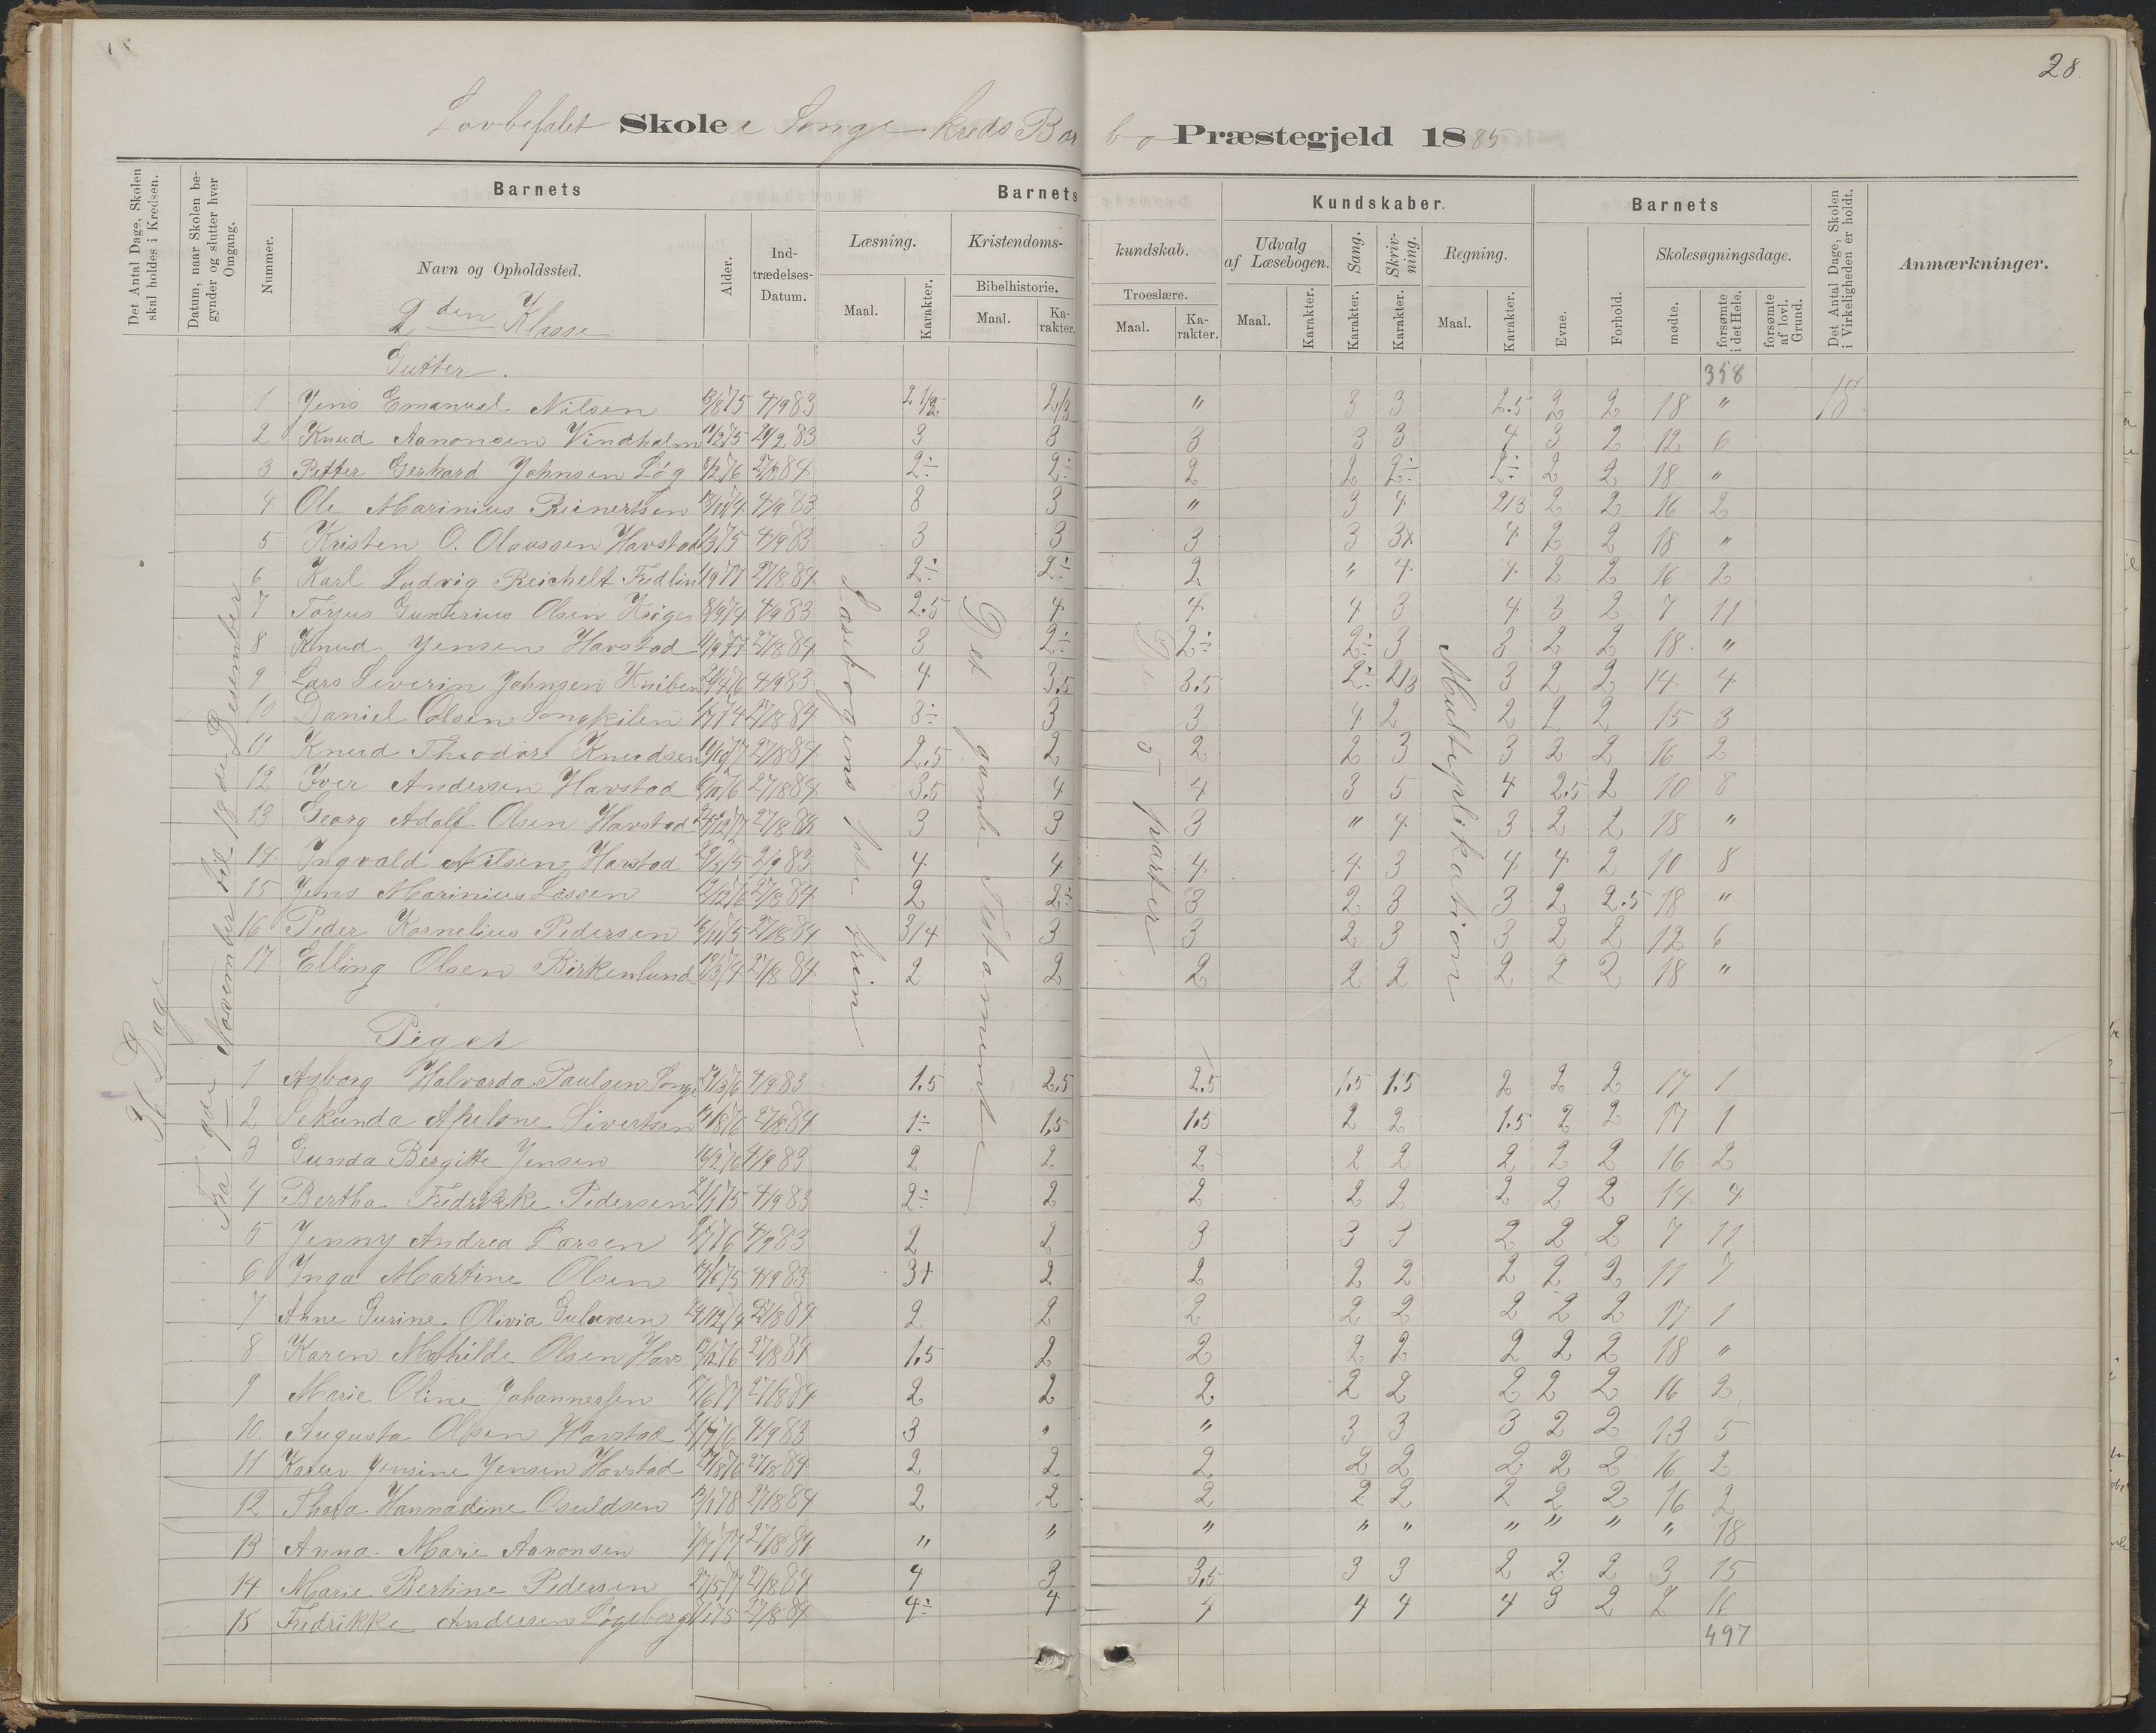 28.
Lovbefalet Skole i Songe kreds Barbo Præstegjeld 1885
Det Antal Dage, Skolen skal holdes i Kredsen.
Datum, naar Skolen begynder og slutter hver Omgang.
Barnets
Nummer.
Navn og Opholdssted.
Alder.
Indtrædelses-Datum.
Barnets Kundskaber.
Læsning. Maal. Karakter.
Kristendomskundskab.
Bibelhistorie. Maal. Karakter.
Troeslære. Maal. Karakter.
Udvalg af Læsebogen. Maal. Karakter.
Sang. Karakter.
Skrivning. Karakter.
Regning. Maal. Karakter.
Barnets
Evne. Forhold.
Skolesøgningsdage.
mødte. forsømte i det Hele. forsømte af lovl. Grund.
Det Antal Dage, Skolen i Virkeligheden er holdt.
Anmærkninger.
2den Klasse
Gutter.
358
36 Dage
Fra 9de November til 18de Desember
Læsebogens 1ste trin
Det gamle Testamente
De 5 parter
Multiplikation
1 Jens Emanuel Nilsen 4/9 83 2 1/2 2/3 " 3 3 2.5 2 2 18 " 18
2 Knud Aanonsen Vindholm 3 3 3 3 3 4 3 2 12 6
3 Petter Gerhard Johnsen Løg 27/8 84 2÷ 2÷ 2 2 2÷ 2÷ 2 2 18 "
4 Ole Marinius Reinertsen 4/9 83 3 3 " 3 4 2/3 2 2 16 2
5 Kristen O. Olaussen Havstad 4/9 83 3 3 3 3 3x 4 2 2 18 "
6 Karl Ludvig Reichelt 27/8 84 2÷ 2÷ 2 " 4 4 2 2 16 2
7 Torjus Gunterius Olsen 4/9 83 2.5 4 4 4 3 4 3 2 7 11
8 Knud Jensen Havstad 27/8 84 3 2÷ 2÷ 2÷ 3 3 2 2 18 "
9 Lars Severin Johnsen 4/9 83 4 3.5 3.5 2÷ 2/3 3 2 2 14 4
10 Daniel Olsen Songkilen 27/8 84 3÷ 3 3 4 2 2 2 2 15 3
11 Knud Theodor Knudsen 27/8 84 2.5 2 2 2 3 3 2 2 16 2
12 Iver Andersen Havstad 27/8 84 3.5 4 4 3 5 4 2.5 2 10 8
13 Georg Adolf Olsen Havstad 27/8 84 3 3 3 " 4 3 2 2 18 "
14 Ingvald Nilsen Havstad 4 4 4 4 3 4 4 2 10 8
15 Jens Marinius Lassen 27/8 84 2 2÷ 3 2 3 3 2 2.5 18 "
16 Peder Kornelius Pedersen 27/8 84 3/4 3 3 2 3 3 2 2 12 6
17 Elling Olsen Birkenlund 27/8 84 2 2 2 2 2 2 2 2 18 "
Piger
1 Asborg Halvarda Paulsen Songe 4/9 83 1.5 2.5 2.5 1.5 1.5 2 2 2 17 1
2 Sekunda Apelone Sivertsen 27/8 84 1÷ 1.5 1.5 2 2 1.5 2 2 17 1
3 Gunda Bergitte Jensen 4/9 83 2 2 2 2 2 2 2 2 16 2
4 Bertha Fredrikke Pedersen 4/9 83 2÷ 2 2 2 2 2 2 2 14 4
5 Jenny Andrea Larsen 4/9 83 2 2 3 3 3 2 2 2 7 11
6 Inga Martine Olsen 4/9 83 3+ 2 2 2 2 2 2 2 11 7
7 Anne Gurine Olivia Gulovsen 24/12 74 27/8 84 2 2 2 2 2 2 2 2 17 1
8 Karen Mathilde Olsen Havs 27/8 84 1.5 2 2 2 2 2 2 2 18 "
9 Marie Oline Johannessen 27/8 84 2 2 2 2 2 2 2 2 16 2
10 Augusta Olsen Havstad 4/9 83 3 " " 3 3 3 2 2 13 5
11 Karen Jensine Jensen Havstad 27/8 84 2 2 2 2 2 2 2 2 16 2
12 Thora Hannadine Osuldsen 27/8 84 2 2 2 2 2 2 2 2 16 2
13 Anna Marie Aanonsen 27/8 84 " " " " " " " " " 18
14 Marie Bertine Pedersen 27/5 77 27/8 84 4 3 3.5 3 3 2 2 2 3 15
15 Fredrikke Andersen Løgeberg 27/8 84 4÷ 4 4 4 4 4 3 2 2 16
497